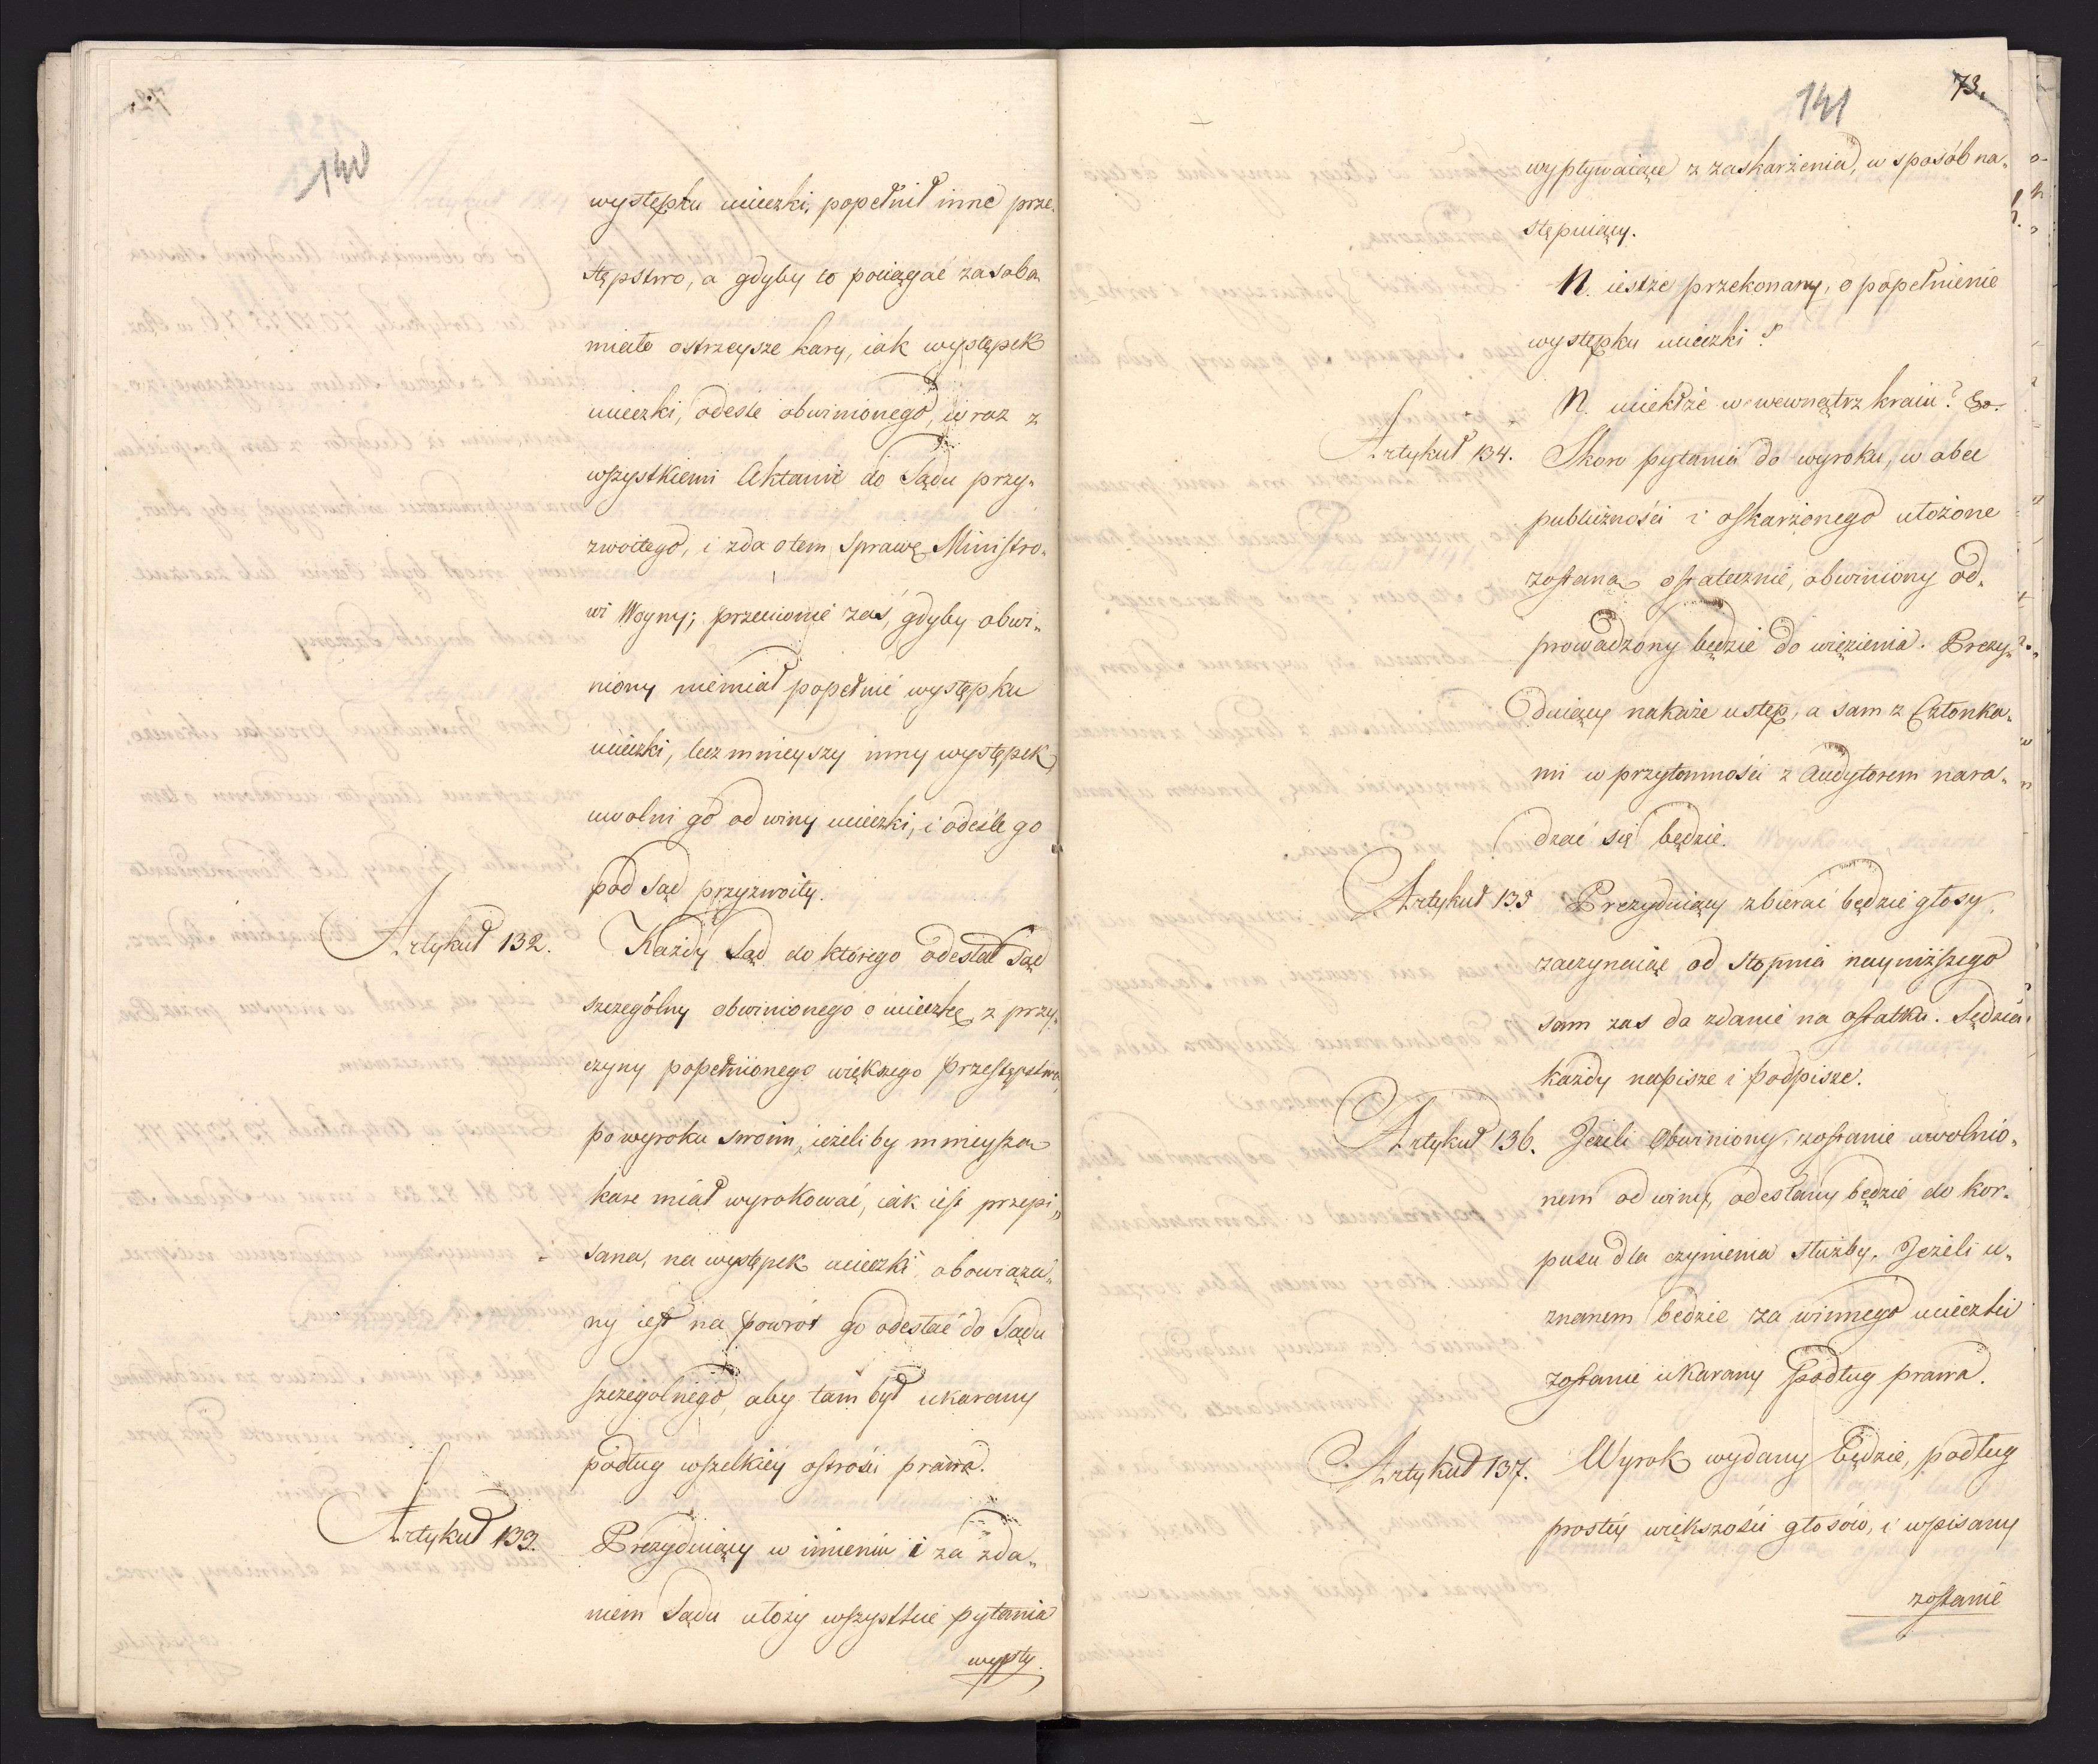 140
występku ucieczki, popełnił inne prze„
stępstwo, a gdyby to pociągać za sobą
miało ostrzeysze kary, iak występek
ucieczki, odesle obwinionego, wraz z
wszystkiemi Aktami do Sądu przy„
zwoitego, i zda o tem sprawę Ministro„
wi Woyny; przeciwnie zaś, gdyby obwi„
niony niemiał popełnić występku
ucieczki, lecz mnieyszy inny występek,
uwolni go od winy ucieczki, i odeśle go
pod Sąd przyzwoity.
Artykuł 132. Każdy Sąd do którego odesłał Sąd
szczególny obwinionego o ucieczkę z przy„
czyny popełnionego większego przestępstwa,
po wyroku swoim, ieżeliby mnieyszą
karę miał wyrokować, iak iest przepi„
sana, na występek ucieczki, obowiąza„
ny iest na powrót go odesłać do Sądu
szczegolnego, aby tam był ukarany
podług wszelkiéy ostrości prawa.
Artykuł 133. Prezyduiący w imieniu i za zda„
niem Sądu ułoży wszystkie pytania
wypły„
141
73.
wypływaiące z zaskarżenia, w sposób na„
stępuiący.
N. iestże przekonany, o popełnienie
występku ucieczki?
N. uciekłże w wewnątrz kraiu? &c.
Artykuł 134. Skoro pytania do wyroku, w obec
publiczności i oskarżonego ułożone
zostaną ostatecznie, obwiniony od„
prowadzony będzie do więzienia. Prezy„
duiący nakaże ustęp, a sam z Członka„
mi w przytomności z Audytorem nara„
dzać się będzie.
Artykuł 135 Prezyduiący zbierać będzie głosy,
zaczynaiąc od stopnia nayniższego
sam zas da zdanie na ostatku. Sędzia
każdy napisze i podpisze.
Artykuł 136. Jeżeli Obwiniony, zostanie uwolnio„
nem od winy, odesłany będzie do kor„
pusu dla czynienia służby. Jeżeli u„
znanem będzie za winnego ucieczki
zostanie ukarany podług prawa.
Artykuł 137. Wyrok wydany będzie, podług
prostéy większości głosów, i wpisany
zostanie